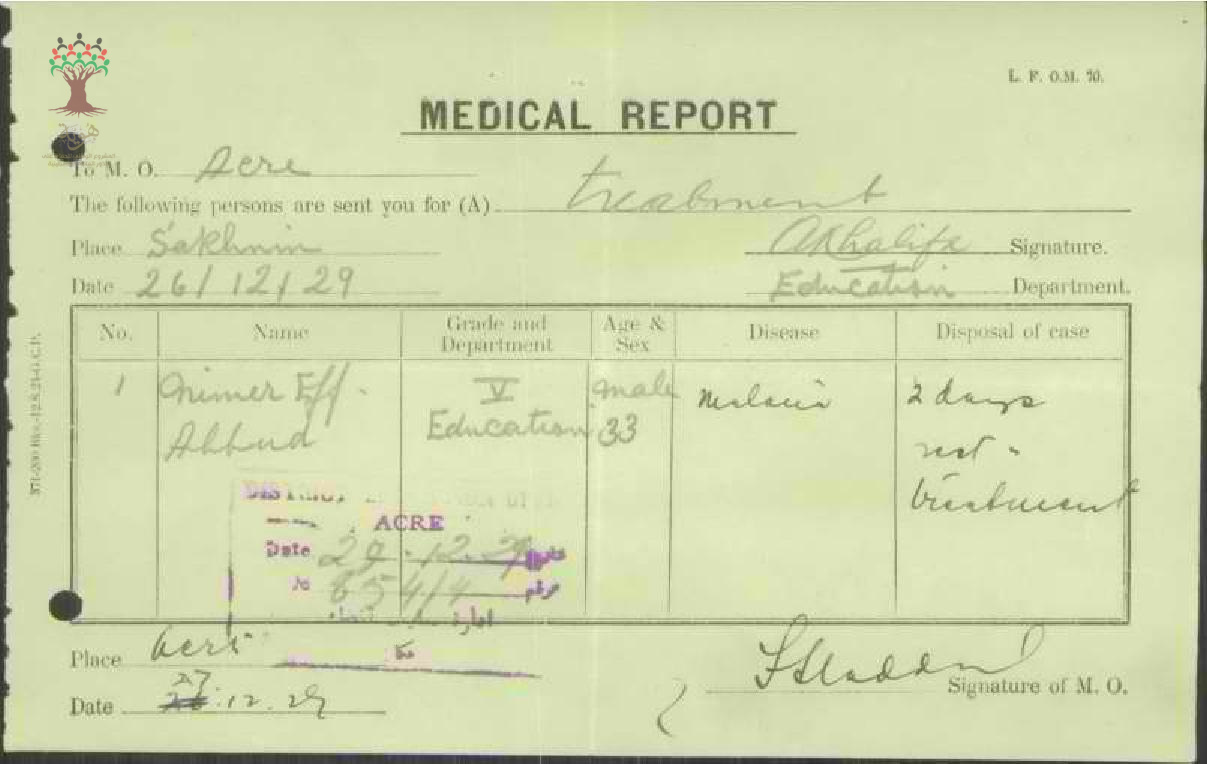 L. F. O.M. 70.
MEDICAL REPORT
To M. O. Acre
The following persons are sent you for (A) treatment
Place Sakhnin
AKhalifa Signature.
Date 26/12/29
Education Department.
No. Name Grade and Department Age & Sex Disease Disposal of case
1 Nimer Eff. V male Malaria 2 days
Education 33
rest
treatment
DISTRICT
ACRE
Date 29.12.29
No 654/4
Place Acre
Date 27.12.29
Signature of M. O.